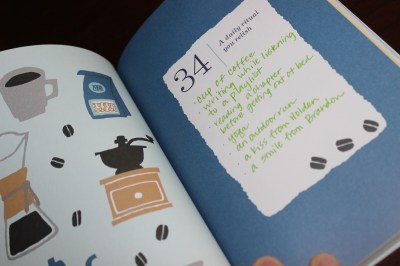 34
A daily ritual
you relish
· cup of coffee
· writing while listening
to a playlist
· reading a chapter
before getting out of bed
· yoga
· an outdoor run
· a kiss from Holden
· a smile from Brandon